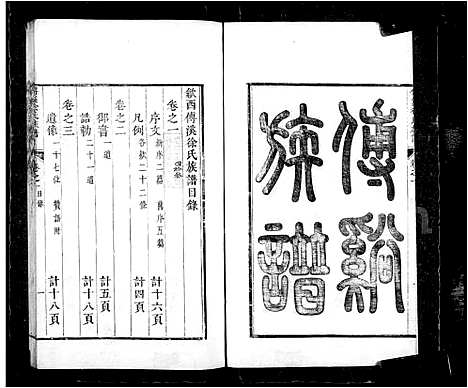 傅溪
族譜
歙西傅溪徐氏族譜目錄
卷之一
序文 新序二篇 舊序五篇 計十六頁
凡例 各款二十二 計四頁
卷之二
御音 一道 計五頁
誥勅 二十一道 計十八頁
卷之三
遺像 一十七位 贊語附 計十八頁